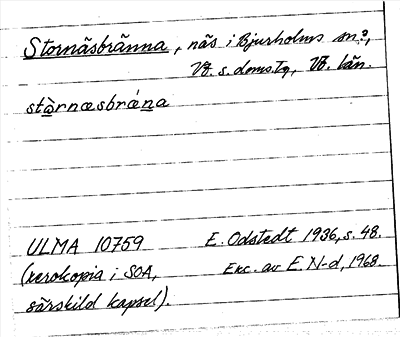 Stornäsbränna, näs i Bjurholms sn,
Vb. s. doms.tg, Vb. län.
stòrnæsbrǽna
ULMA 10759 E. Odstedt 1936, s. 48.
(xerokopia i SOA, Exc. av E. N-d, 1968.
särskild kapsel).